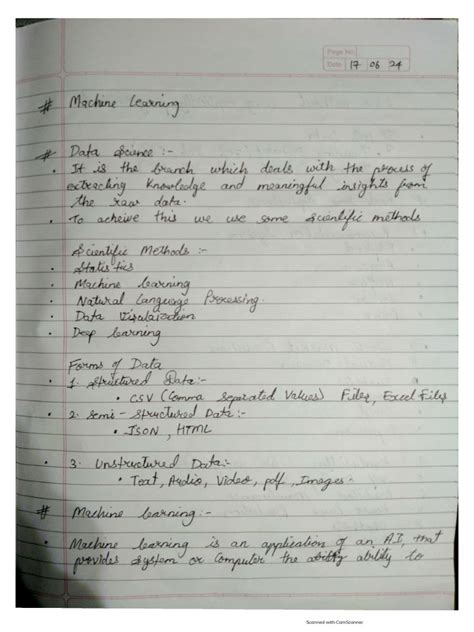 Page No.
Date 17 08 24
# Machine Learning
# Data Science :-
• It is the branch which deals with the process of
extracting knowledge and meaningful insights from
the raw data.
• To acheive this we use some scientific methods
Scientific Methods :-
• Statistics
• Machine learning
• Natural Language Processing.
• Data Visalization
• Deep learning
Forms of Data
• 1. Structured Data:-
• CSV (Comma Separated Values) Files, Excel Files
• 2. Semi - Structured Data:-
• JSON, HTML
• 3. Unstructured Data:-
• Text, Audio, Video, pdf, Images.
# Machine learning :-
• Machine learning is an application of an AI, that
provides system or computer the ability to
Scanned with CamScanner